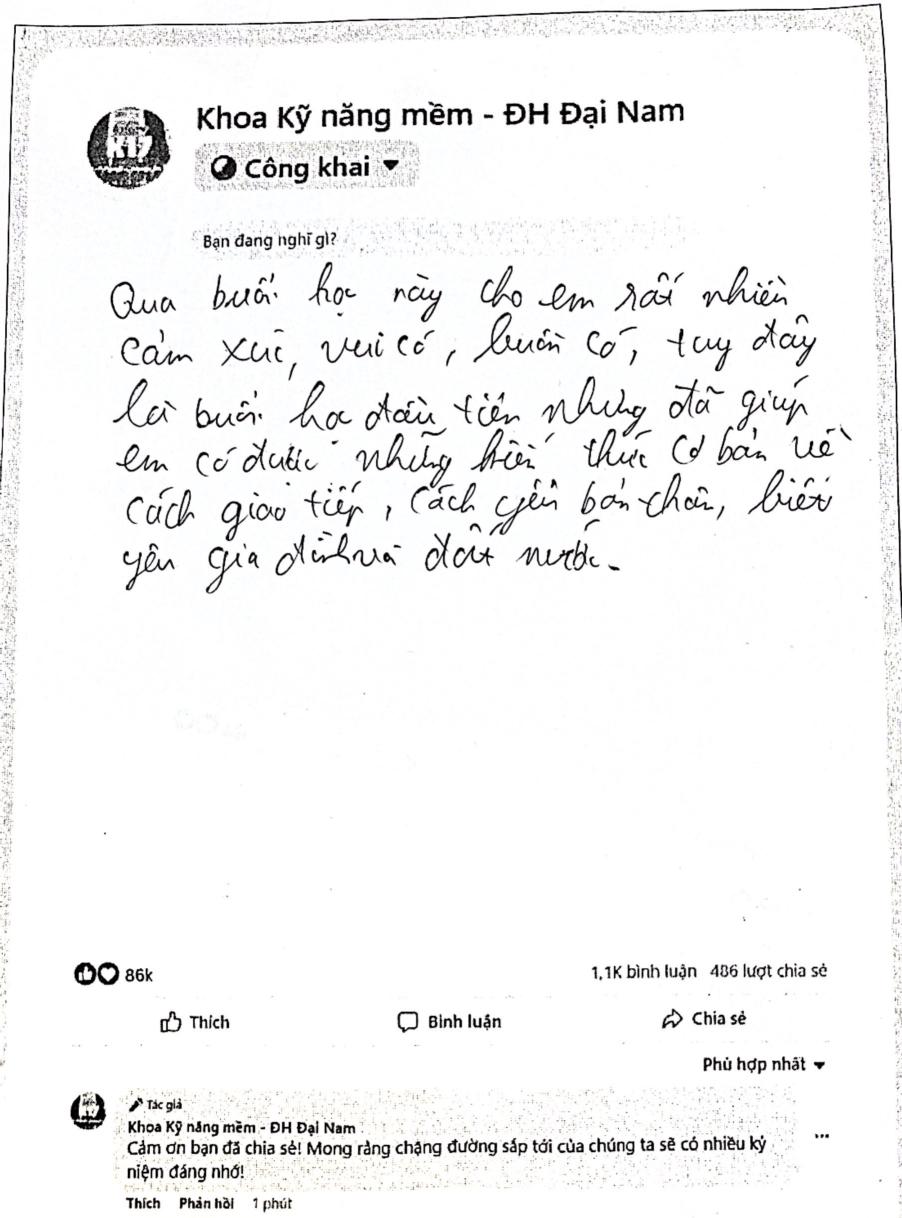 K17
Khoa Kỹ năng mềm - ĐH Đại Nam
Công khai
Bạn đang nghĩ gì?
Qua buổi học này cho em rất nhiều
cảm xúc, vui có, buồn có, tuy đây
là buổi học đầu tiên nhưng đã giúp
em có được những kiến thức cơ bản về
cách giao tiếp, cách yêu bản thân, biết
yêu gia đình và đất nước.
86k
1,1K bình luận 486 lượt chia sẻ
Thích Bình luận Chia sẻ
Phù hợp nhất
Tác giả
Khoa Kỹ năng mềm - ĐH Đại Nam
Cảm ơn bạn đã chia sẻ! Mong rằng chặng đường sắp tới của chúng ta sẽ có nhiều kỷ
niệm đáng nhớ!
Thích Phản hồi 1 phút